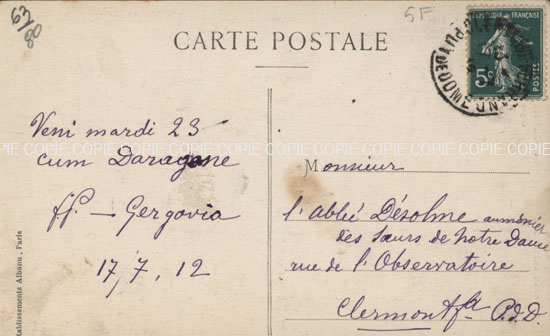 63/80
5F
CARTE POSTALE
RÉPUBLIQUE FRANÇAISE
5c
POSTES
PUY-DE-DOME
Veni mardi 23
cum Daragone
COPIE COPIE COPIE COPIE COPIE COPIE COPIE COPIE COPIE COPIE COPIE COPIE COPIE
ff — Gergovia
17, 7, 12
Monsieur
l'abbé Désolme aumônier
des Sœurs de Notre Dame
rue de l'Observatoire
Clermont Fd P.d.D
Etablissements Albaan, Paris